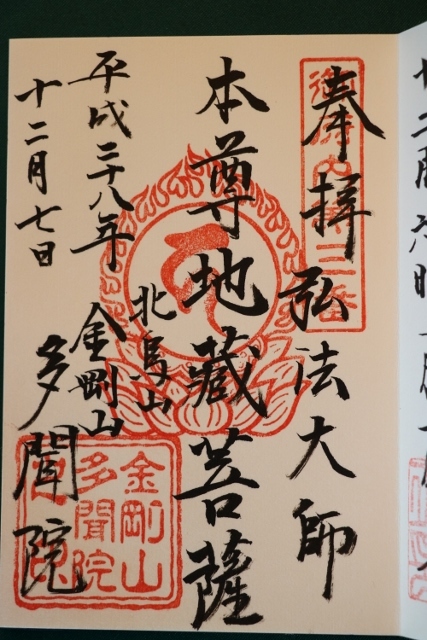 奉拝
弘法大師
本尊地蔵菩薩
北烏山
金剛山
多聞院
平成二十八年
十二月七日
金剛山
多聞院